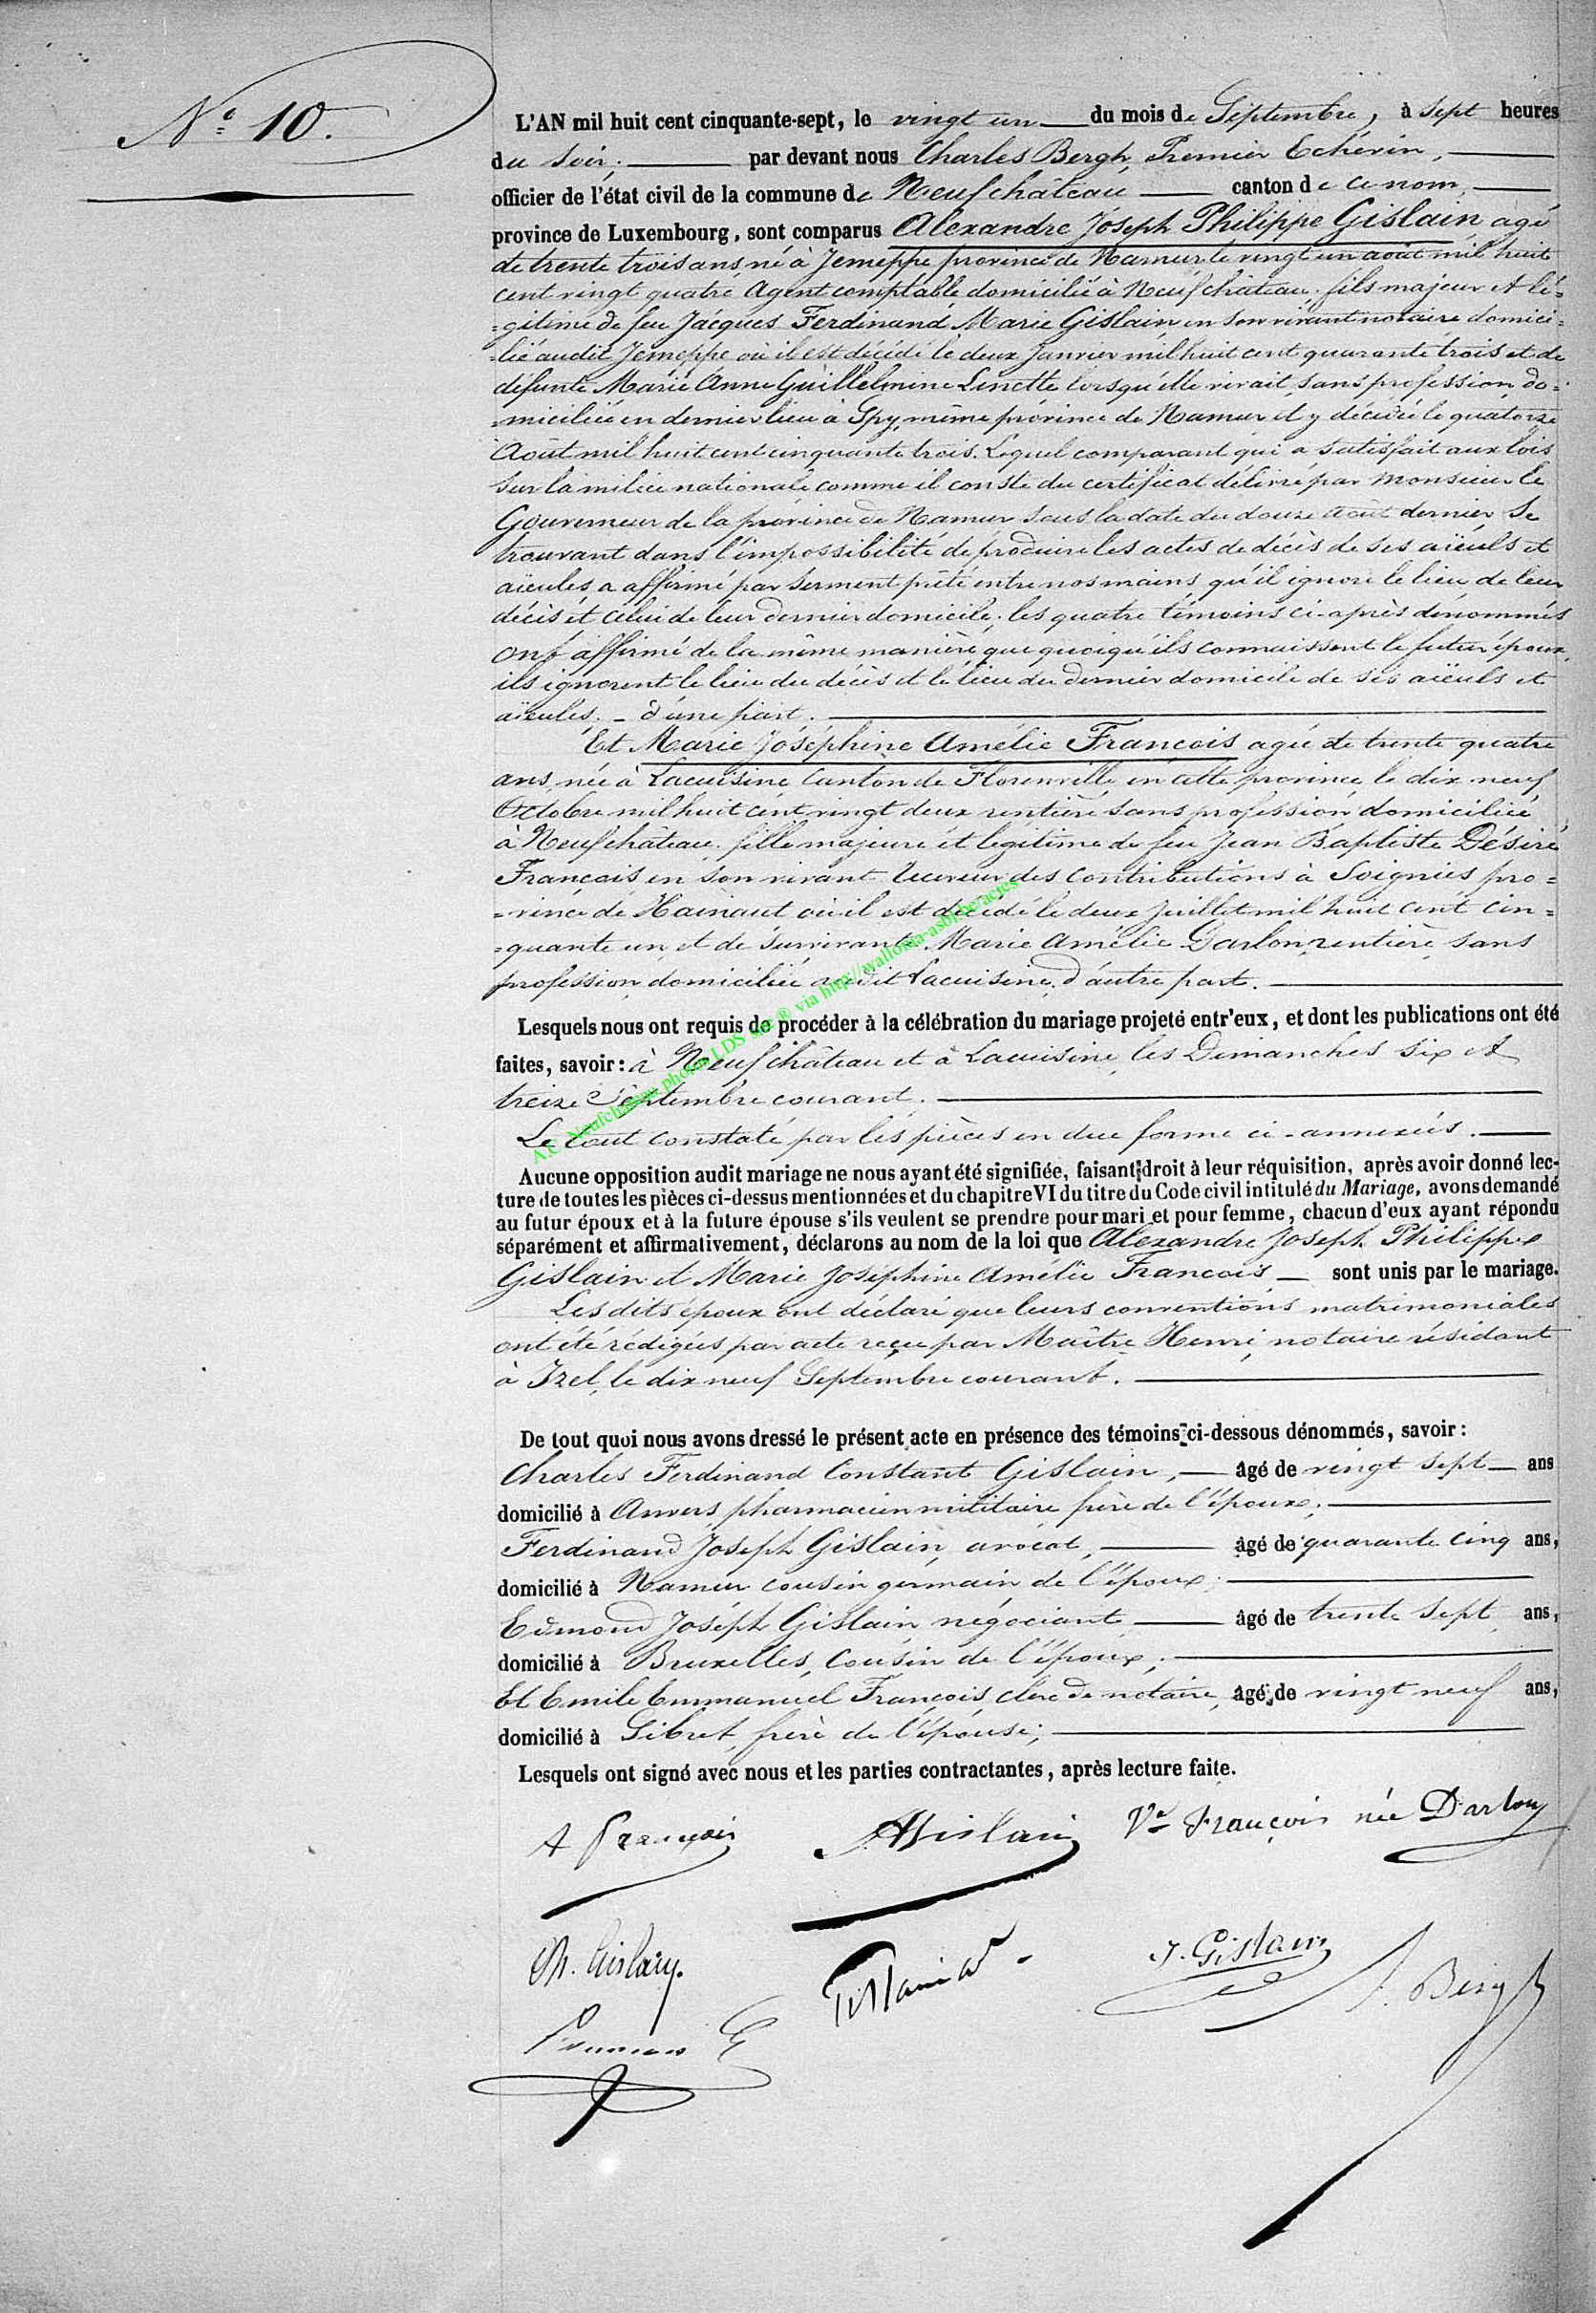 N° 10.
L'AN mil huit cent cinquante-sept, le vingt un du mois de Septembre, à sept heures
du soir, par devant nous Charles Bergh, Premier Echevin,
officier de l'état civil de la commune de Neufchâteau canton de ce nom,
province de Luxembourg, sont comparus Alexandre Joseph Philippe Gislain agé
de trente trois ans, né à Jemeppe province de Namur le vingt un août mil huit
cent vingt quatre, Agent comptable domicilié à Neufchâteau, fils majeur et lé=
=gitime de feu Jacques Ferdinand Marie Gislain en son vivant notaire domici=
=lié audit Jemeppe où il est décédé le deux Janvier mil huit cent quarante trois et de
défunte Marie Anne Guillelmine Linette lorsqu'elle vivait, sans profession, do=
=miciliée en dernier lieu à Spy, même province de Namur et y décédée le quatorze
Août mil huit cent cinquante trois. Lequel comparant qui a satisfait aux lois
sur la milice nationale comme il conste du certificat délivré par Monsieur le
Gouverneur de la province de Namur sous la date du douze août dernier se
trouvant dans l'impossibilité de produire les actes de décès de ses aïeuls et
aïeules, a affirmé par serment prêté entre nos mains qu'il ignore le lieu de leur
décès et celui de leur dernier domicile; les quatre témoins ci-après dénommés
ont affirmé de la même manière, que quoiqu'ils connaissent le futur époux,
ils ignorent le lieu du décès et le lieu du dernier domicile de ses aïeuls et
aïeules. - d'une part.
Et Marie Joséphine Amélie François agée de trente quatre
ans, née à Lacuisine Canton de Florenville en cette province le dix neuf
Octobre mil huit cent vingt deux rentière sans profession domiciliée
à Neufchâteau, fille majeure et légitime de feu Jean Baptiste Désiré
François en son vivant Receveur des Contributions à Soignies pro=
=vince de Hainaut où il est décédé le deux Juillet mil huit cent cin=
=quante un et de survivante Marie Amélie Darlon, rentière, sans
profession, domiciliée audit Lacuisine, d'autre part.
Lesquels nous ont requis de procéder à la célébration du mariage projeté entr'eux, et dont les publications ont été
faites, savoir: à Neufchâteau et à Lacuisine, les Dimanches six et
treize Septembre courant.
Le tout constaté par les pièces en due forme ci-annexées.
Aucune opposition audit mariage ne nous ayant été signifiée, faisant droit à leur réquisition, après avoir donné lec-
ture de toutes les pièces ci-dessus mentionnées et du chapitre VI du titre du Code civil intitulé du Mariage, avons demandé
au futur époux et à la future épouse s'ils veulent se prendre pour mari et pour femme, chacun d'eux ayant répondu
séparément et affirmativement, déclarons au nom de la loi que Alexandre Joseph Philippe
Gislain et Marie Joséphine Amélie François sont unis par le mariage.
Les dits époux ont déclaré que leurs conventions matrimoniales
ont été rédigées par acte reçu par Maître Henri, notaire résidant
à Izel, le dix neuf Septembre courant.
De tout quoi nous avons dressé le présent acte en présence des témoins ci-dessous dénommés, savoir:
Charles Ferdinand Constant Gislain, âgé de vingt sept ans
domicilié à Anvers, pharmacien militaire frère de l'époux,
Ferdinand Joseph Gislain, avocat, âgé de quarante cinq ans,
domicilié à Namur cousin germain de l'époux;
Edmond Joseph Gislain négociant âgé de trente sept ans,
domicilié à Bruxelles, Cousin de l'époux;
Et Emile Emmanuel François, clerc de notaire, âgé de vingt neuf ans,
domicilié à Sibret, frère de l'épouse;
Lesquels ont signé avec nous et les parties contractantes, après lecture faite.
A François AGislain Ve François née Darlon
Ch. Gislain. J. Gislain Bergh
A.C. Neufchâteau photos LDS sur ® via http://wallonia-asbl.be/actes